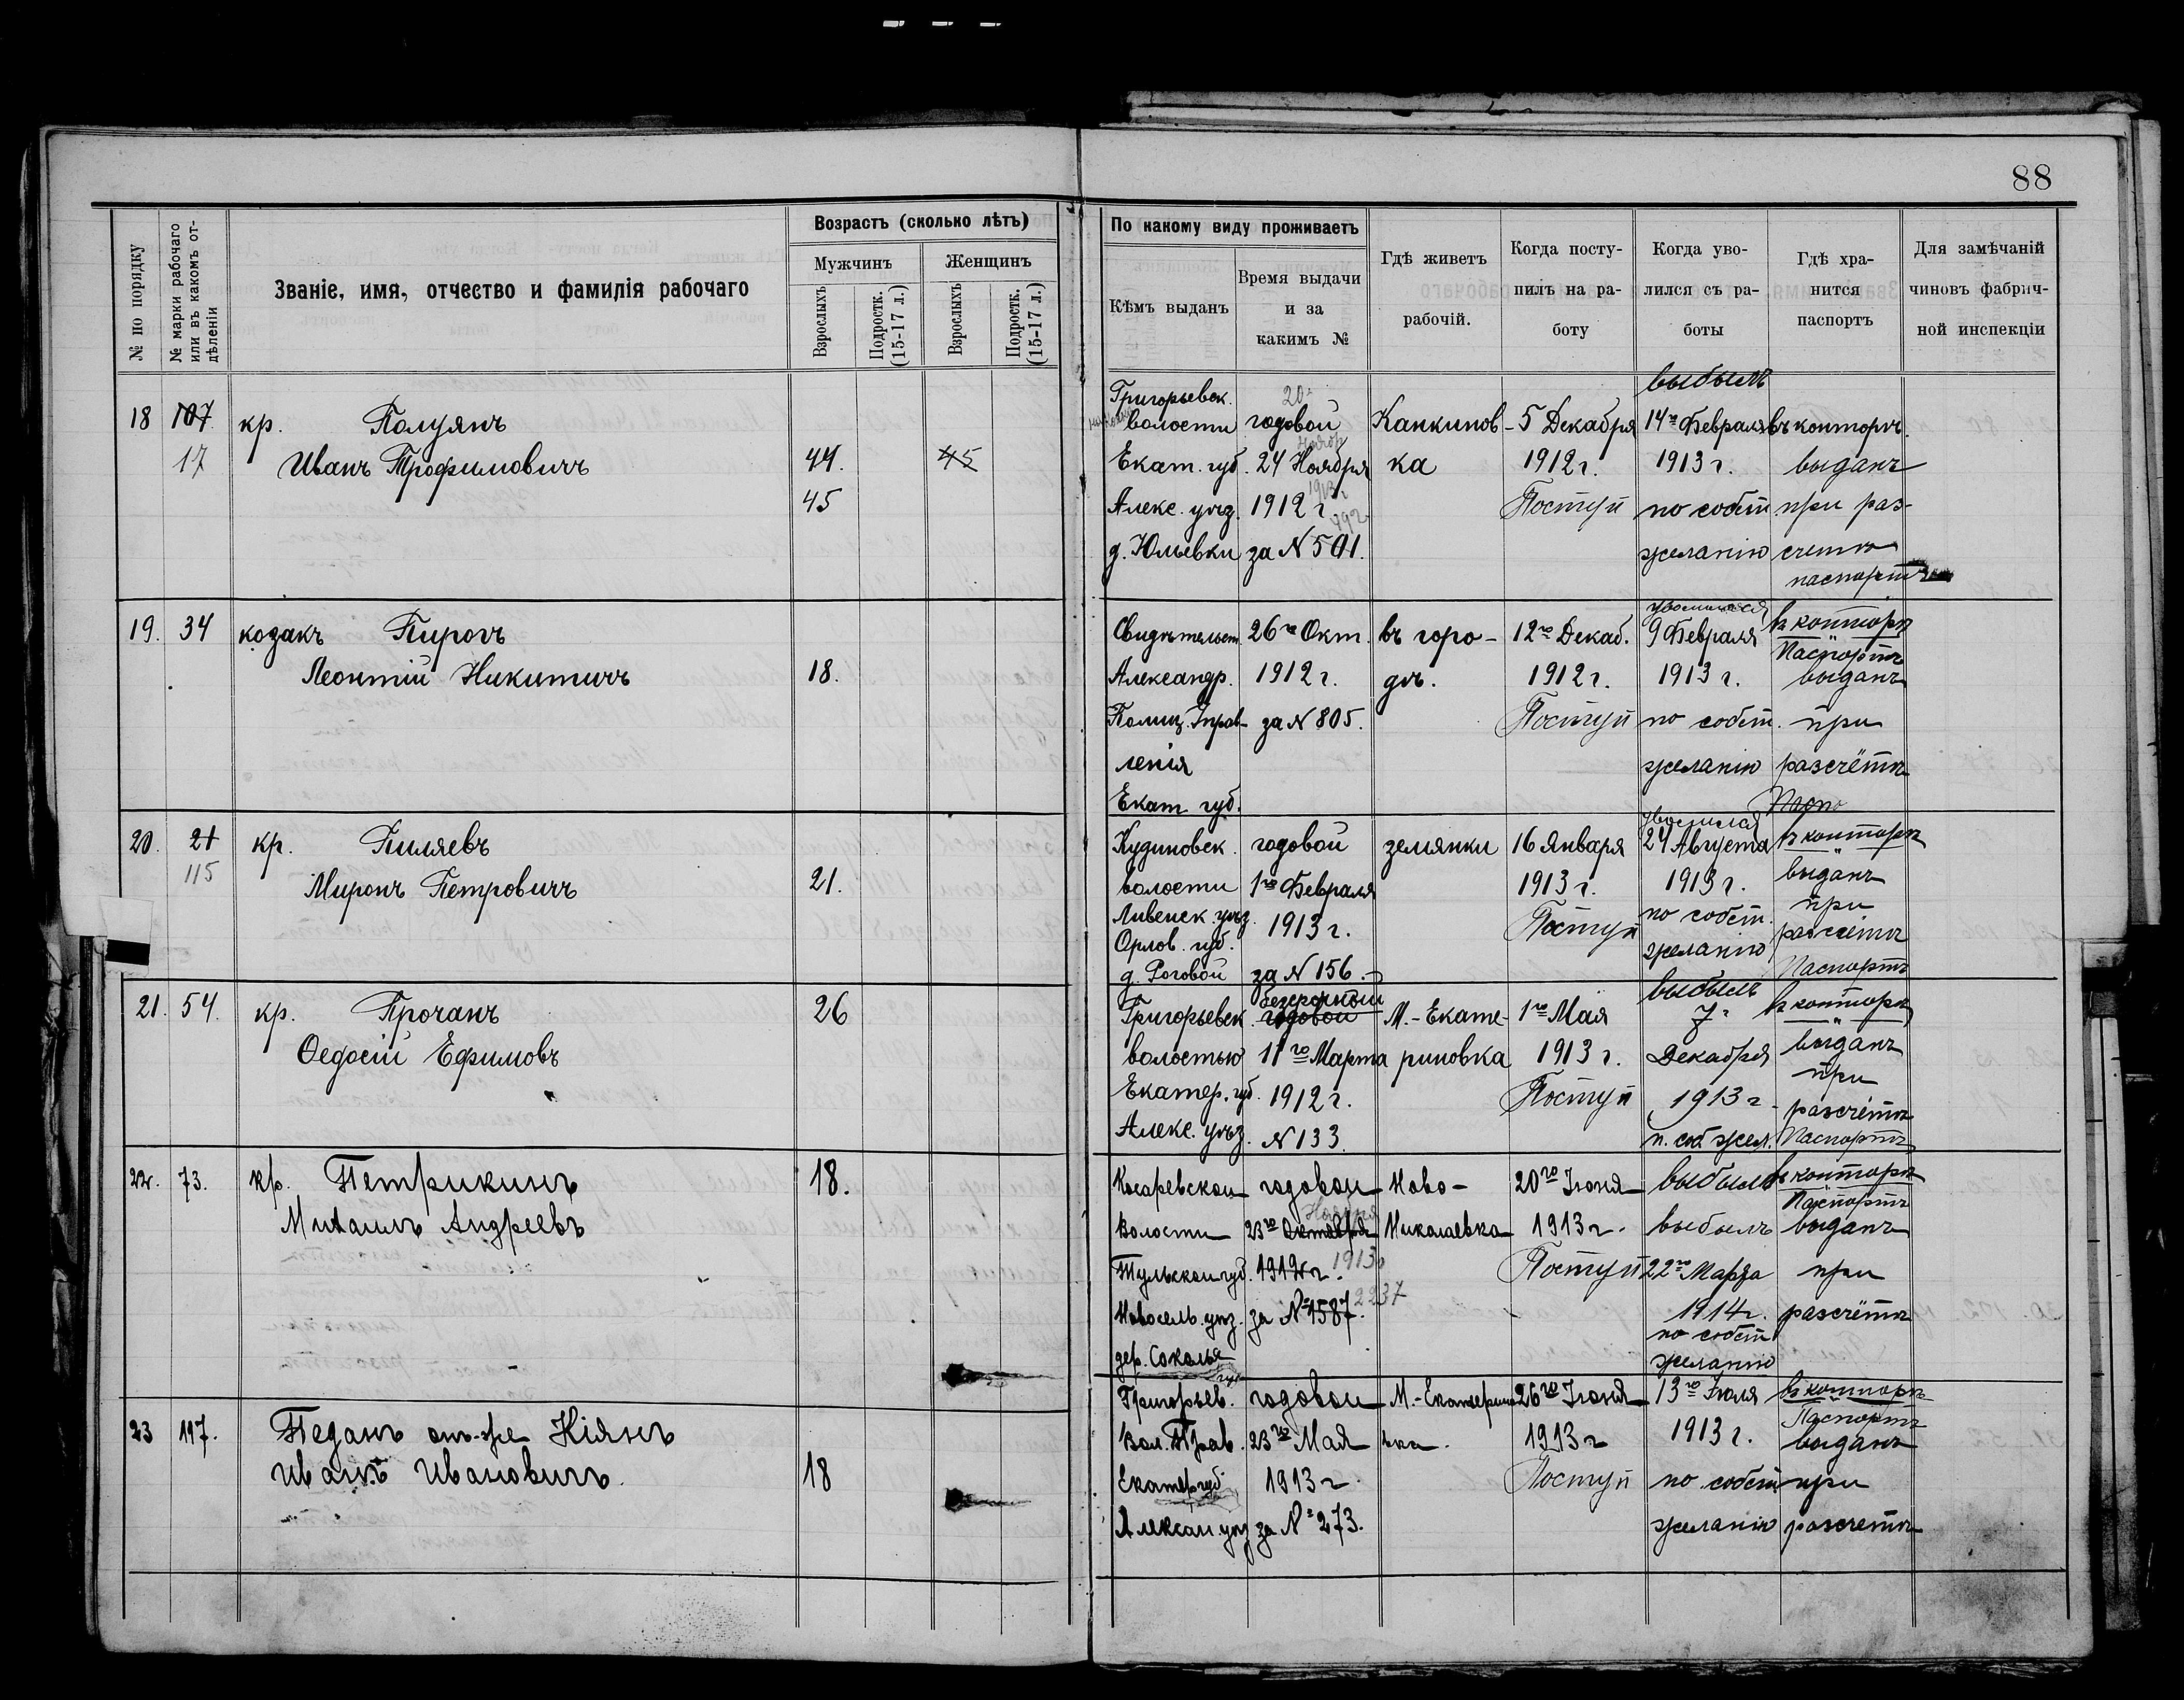 88
№ по порядку
№ марки рабочаго или въ какомъ отдѣленіи
Званіе, имя, отчество и фамилія рабочаго
Возрастъ (сколько лѣтъ)
Мужчинъ
Женщинъ
Взрослыхъ
Подростк. (15-17 л.)
Взрослыхъ
Подростк. (15-17 л.)
По какому виду проживаетъ
Кѣмъ выданъ
Время выдачи
и за
какимъ №
Гдѣ живетъ
рабочій.
Когда посту-
пилъ на ра-
боту
Когда уво-
лился съ ра-
боты
Гдѣ хра-
нится
паспортъ
Для замѣчаній
чиновъ фабрич-
ной инспекціи
18 107 17
кр. Полуянъ
Иванъ Трофимовичъ
44.
45
45
Григорьевск.
волости
Екат. губ.
Алекс. уѣз.
д. Юльевки
20
годовой
24 Ноября
1912 г.
1913 г
492
за N 501.
Канкинов-
ка
5 Декабря
1912 г.
Поступ
выбылъ
14го Февраля
1913 г.
по собст
желанію
въ конторѣ.
выданъ
при раз-
счетѣ
паспортъ
19. 34
козакъ Пирогъ
Леонтій Никитичъ
18.
Свидѣтельст.
Александр.
Полиц. Управ-
ленія
Екат. губ.
26го Окт.
1912 г.
за N 805.
въ горо-
дѣ.
12го Декаб.
1912 г.
Поступ
уволился
9 Февраля
1913 г.
по собст.
желанію
въ конторѣ
Паспортъ
выданъ
при
разсчётѣ
20. 21 115
кр. Пиляевъ
Миронъ Петровичъ
21.
Кудиновск.
волости
Ливенск. уѣз.
Орлов. губ.
д. Роговой
годовой
1го Февраля
1913 г.
за N 156.
землянки
16 Января
1913 г.
Поступ
Паспо
уволился
24 Августа
1913 г.
по собст.
желанію
въ конторѣ
выданъ
при
разсчётѣ
Паспортъ
21. 54.
кр. Прочанъ
Ѳедосій Ефимовъ
26
Григорьевск.
волостью
Екатер. губ.
Алекс. уѣз.
безсрочный
годовой
11го Марта
1912 г.
N 133.
М.-Екате-
риновка
1го Мая
1913 г.
Поступ
выбылъ
7
Декабря
1913 г.
п. соб. жел.
въ конторѣ
выданъ
при
разсчётѣ
Паспортъ
22. 73.
кр. Петрикинъ
Михаилъ Андреевъ
18.
Косаревской
Волости
Тульской губ.
Новосел. уѣз.
дер. Соколья
годовой
Ноября
23го Октября
1912 г. 1913
за № 1587. 2237
Ново-
Николаевка
20го Іюня
1913 г.
Поступ
выбылъ
выбылъ
22го Марта
1914 г.
по собст
желанію
въ конторѣ
Паспортъ
выданъ
при
разсчётѣ
23 117.
Педанъ онъ-же Кіянъ
Иванъ Ивановичъ.
18
Григорьев.
Вол. Прав.
Екатер губ.
Алексан. уѣз
годовой
23го Мая
1913 г.
за № 273.
М.-Екатерино
вка.
26го Іюня
1913 г
Поступ
13го Іюля
1913 г.
по собст
желанію
въ конторѣ
Паспортъ
выданъ
при
разсчетѣ